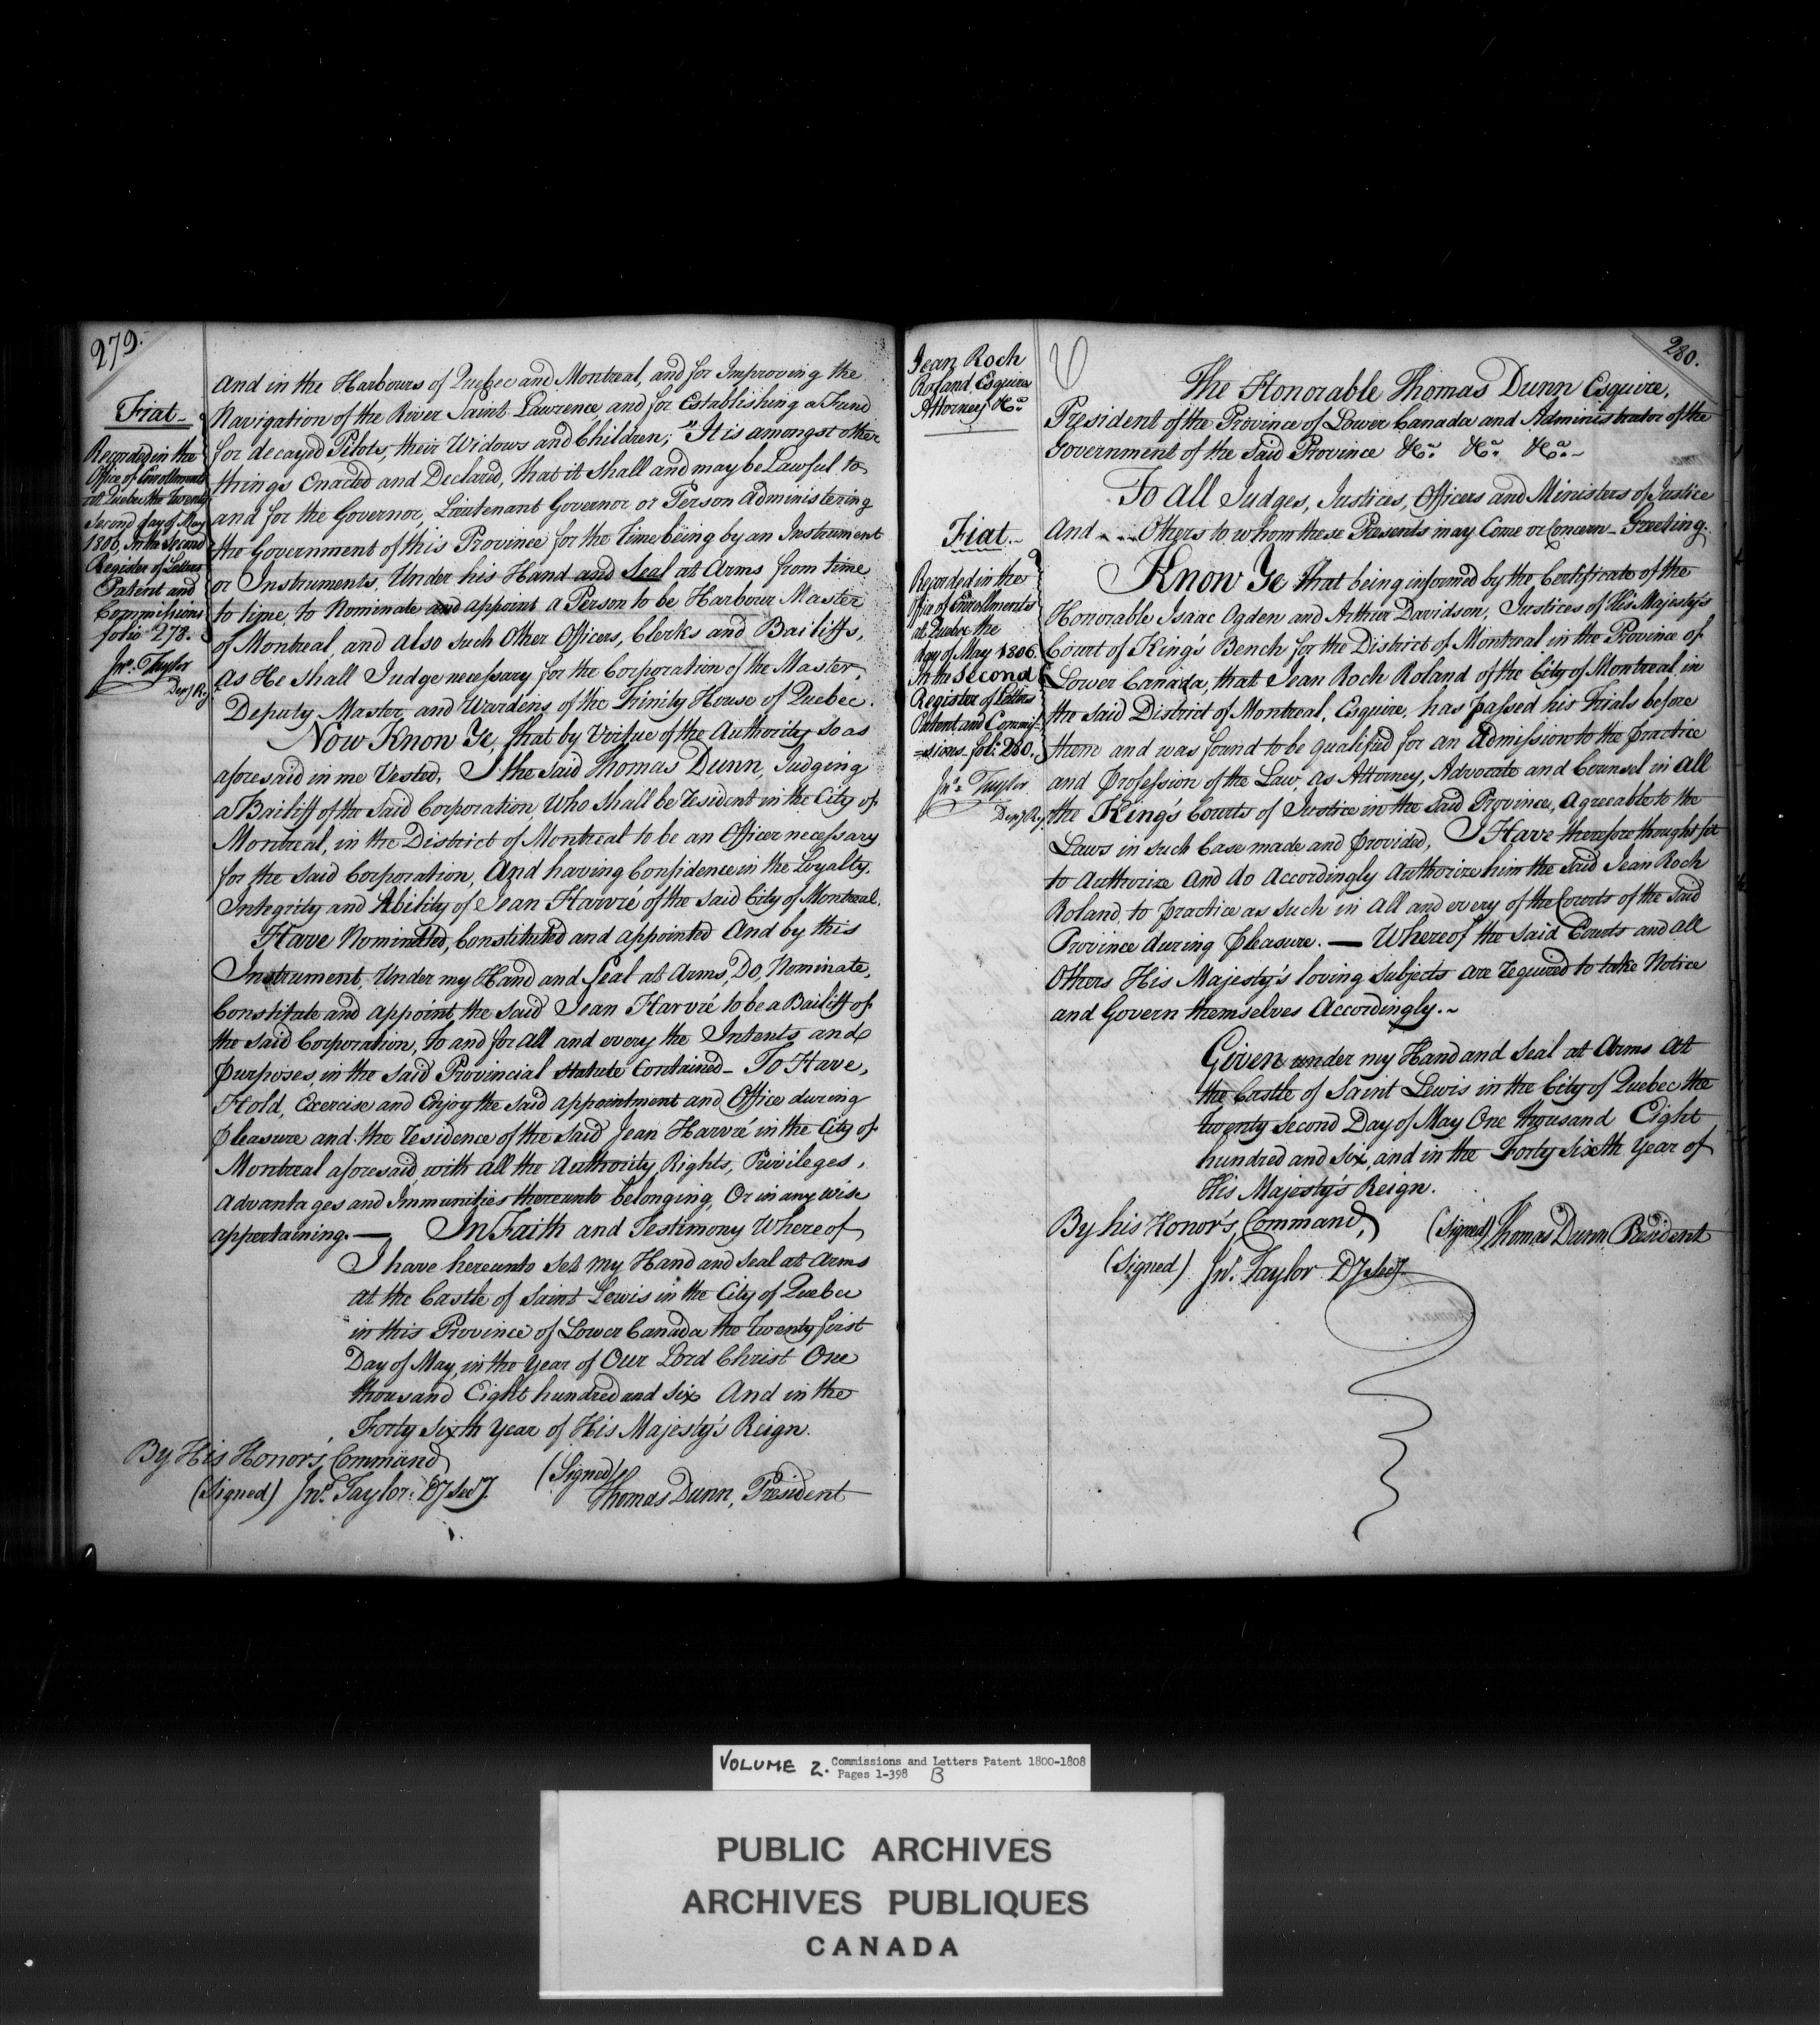 279.
Fiat
Recorded in the
Office of Enrollments
at Quebec the twenty
Second day of May
1806, In the Second
Register of Letters
Patent and
Commissions
folio 278.
Jnº. Taylor
Depy Rr.
and in the Harbours of Quebec and Montreal, and for Improving the
Navigation of the River Saint Lawrence, and for Establishing a Fund
for decayed Pilots, their Widows and Children," It is amongst other
things Enacted and Declared, that it Shall and may be Lawful to
and for the Governor, Lieutenant Governor or Person administering
the Government of this Province for the time being by an Instrument
or Instruments, Under his Hand and Seal at Arms from time
to time, to Nominate and appoint a Person to be Harbour Master
of Montreal, and also such Other Officers, Clerks and Bailiffs,
as He Shall Judge necessary for the Corporation of the Master,
Deputy Master, and Wardens of the Trinity House of Quebec.
Now Know Ye, that by Virtue of the Authority so as
aforesaid in me Vested, I the said Thomas Dunn, Judging
a Bailiff of the Said Corporation, Who Shall be resident in the City of
Montreal, in the District of Montreal to be an Officer necessary
for the said Corporation, And having Confidence in the Loyalty,
Integrity and Ability of Jean Harvié of the said City of Montreal.
Have Nominated, Constituted and appointed And by this
Instrument, Under my Hand and Seal at Arms, Do, Nominate,
Constitute and appoint, the said Jean Harvié to be a Bailiff of
the said Corporation, To and for all and every the Intents and
purposes, in the said Provincial Statute Contained – To Have,
Hold, Exercise and Enjoy the said appointment and Office during
pleasure and the residence of the said Jean Harvié in the City of
Montreal aforesaid, with all the Authority, Rights, Privileges,
Advantages and Immunities thereunto belonging, Or in any wise
appertaining. — In Faith and Testimony Whereof
I have hereunto set my Hand and Seal at Arms
at the Castle of Saint Lewis in the City of Quebec
in this Province of Lower Canada the twenty first
Day of May, in the Year of Our Lord Christ One
thousand Eight hundred and six And in the
Forty sixth Year of His Majesty's Reign.
By His Honors, Command,
(Signed) Jnº. Taylor. Dy Secy.
(Signed)
Thomas Dunn, President
280.
Jean Roch
Roland Esquire
Attorney &ca
The Honorable Thomas Dunn Esquire,
President of the Province of Lower Canada and Administrator of the
Government of the Said Province &ca &ca &ca –
To all Judges, Justices, Officers and Ministers of Justice
And . . . Others to whom these Presents may Come or Concern – Greeting.
Fiat.
Recorded in the
Office of Enrollments
at Quebec the
day of May 1806.
In the Second
Register of Letters
Patent and Commis-
=sions. fol: 280.
Jnº. Taylor
Depy Rr.
Know Ye that being informed by the Certificate of the
Honorable Isaac Ogden and Arthur Davidson, Justices of His Majesty's
Court of King's Bench for the District of Montreal in the Province of
Lower Canada, that Jean Roch Roland of the City of Montreal, in
the said District of Montreal, Esquire, has passed his Trials before
them and was found to be qualified for an Admission to the practice
and profession of the Law, as Attorney, Advocate and Counsel in all
the King's Courts of Justice in the said Province, Agreeable to the
Laws in such Case made and provided, I Have therefore thought fit
to Authorize And do Accordingly Authorize him the said Jean Roch
Roland, to practice as such in all and every of the Courts of the said
Province during pleasure. — Whereof the said Courts and all
Others His Majesty's loving Subjects are required to take Notice
and Govern themselves Accordingly.
Given under my Hand and Seal at Arms At
the Castle of Saint Lewis in the City of Quebec the
twenty second Day of May One thousand Eight
hundred and six, and in the Forty sixth Year of
His Majesty's Reign.
By his Honor's, Command,
(Signed) Thomas Dunn President
(Signed) Jnº. Taylor Dy Secy.
VOLUME 2. Commissions and Letters Patent 1800-1808
Pages 1-398 B
PUBLIC ARCHIVES
ARCHIVES PUBLIQUES
CANADA